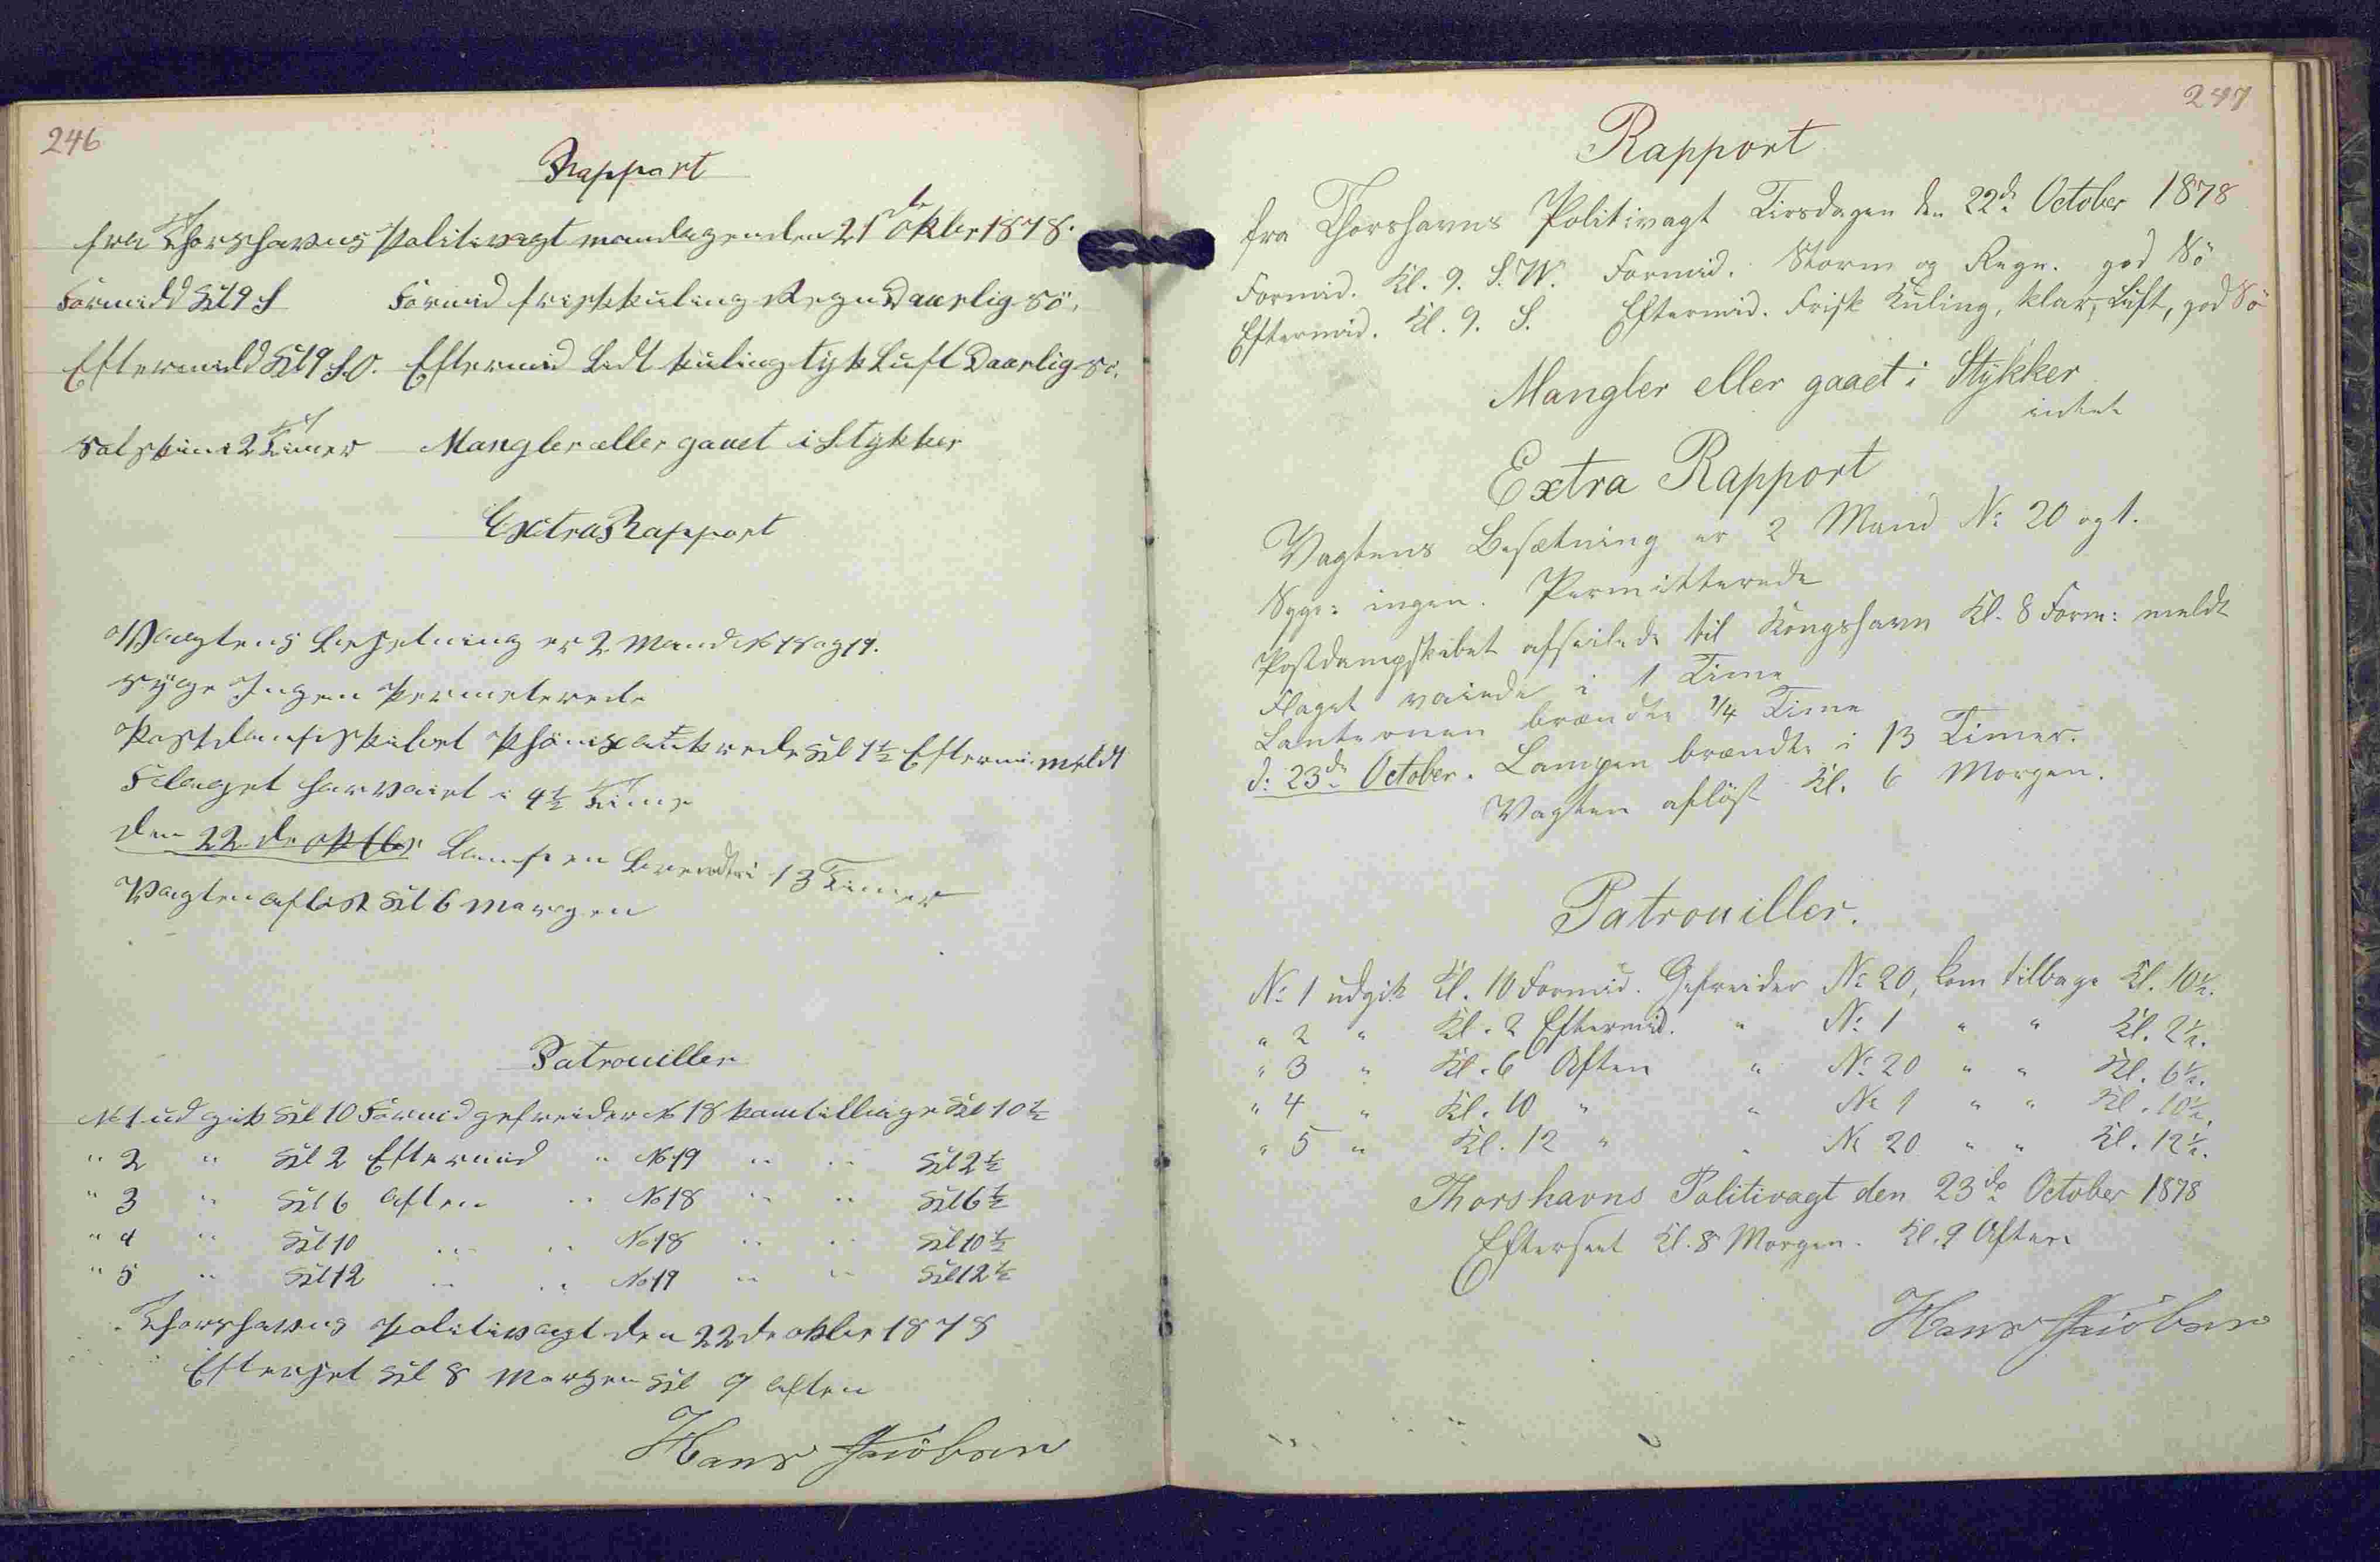 246
Rapport
fra Thorshavns Politivagt mandagen den 21de oktbr 1878.
Formidd Kl 9 S Formid frisk kuling Regn Daarlig sö,
Eftermidd Kl 9 S.O. Eftermid Lidt kuling tyk Luft Daarlig sö.
solskin i 2 Timer Mangler eller gaaet i Stykker
Extra Rapport
Vagtens Besetning er 2 Mand No 18 og 19.
syge Ingen Permeterede
Postdampskibet Phönix ankrede Kl 1½ Eftermi. meldt
Flaget har vaiet i 4½ Time
den 22 de oktbr Lampen brendte i 13 Timer
Vagten aflöst Kl 6 morgen
Patrouiller
No 1 udgik Kl 10 Formid gefreider No 18 kom tilbage Kl 10½
" 2 " Kl 2 Eftermid " No 19 " " Kl 2½
" 3 " Kl 6 aften " No 18 " " Kl 6½
" 4 " Kl 10 " " No 18 " " Kl 10½
" 5 " Kl 12 " " No 19 " " Kl 12½
Thorshavns politivagt den 22 de oktbr 1878
Efterset Kl 8 morgen Kl 9 aften
Hans Jacobsen
247
Rapport
fra Thorshavns Politivagt Tirsdagen den 22de October 1878
Formid. Kl. 9. S.W. Formid. Storm og Regn. god Sö
Eftermid. Kl. 9. S. Eftermid. Frisk Kuling, klar Luft, god Sö
Mangler eller gaaet i Stykker
intet
Extra Rapport
Vagtens Besætning er 2 Mand No 20 og 1.
Syge: ingen. Permitterede
Postdampskibet afseilede til Kongshavn Kl. 8 Form: meldt
Flaget vaiede i 1 Time
Lanternen brændte 1/4 Time
d: 23de October. Lampen brændte i 13 Timer.
Vagten aflöst Kl. 6 Morgen.
Patrouiller.
No 1 udgik Kl. 10 Formid. Gefreider No 20, kom tilbage Kl. 10½.
" 2 " Kl. 2 Eftermid. " No 1 " " Kl. 2½.
" 3 " Kl. 6 Aften " No 20 " " Kl. 6½.
" 4 " Kl. 10 " " No 1 " " Kl. 10½.
" 5 " Kl. 12 " " No 20 " " Kl. 12½.
Thorshavns Politivagt den 23de October 1878
Efterseet Kl. 8 Morgen. Kl. 9 Aften
Hans Jacobsen